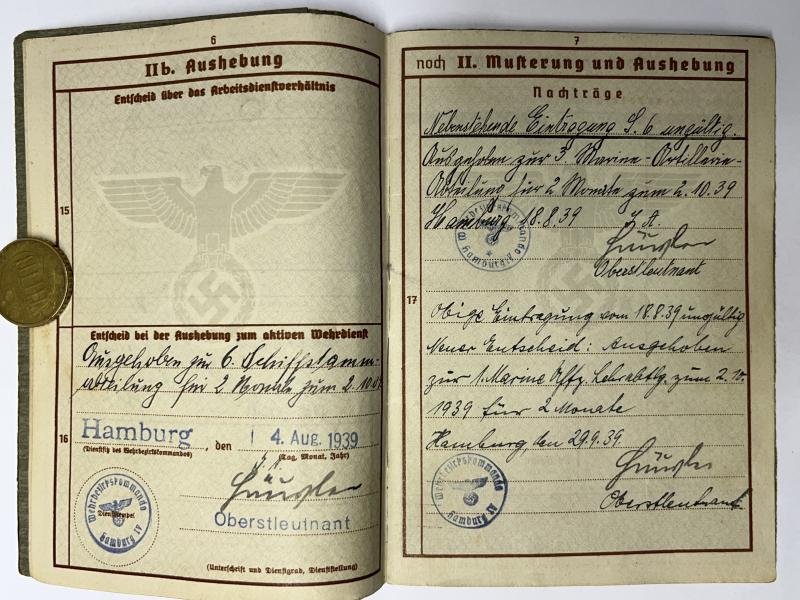 6
IIb. Aushebung
Entscheid über das Arbeitsdienstverhältnis
15
Entscheid bei der Aushebung zum aktiven Wehrdienst
Ausgehoben zu 6. Schiffstamm-
abteilung für 2 Monate zum 2.10.
16
Hamburg, den 4. Aug. 1939
(Dienstsitz des Wehrbezirkskommandos) (Tag, Monat, Jahr)
Wehrbezirkskommando
Hamburg IV
Dienststempel
Oberstleutnant
(Unterschrift und Dienstgrad, Dienststellung)
7
noch II. Musterung und Aushebung
Nachträge
Nebenstehende Eintragung S. 6 ungültig.
Ausgehoben zur 3. Marine-Artillerie-
Abteilung für 2 Monate zum 2.10.39
Hamburg 18.8.39 I.A.
Wehrbezirkskommando
Hamburg IV
Oberstleutnant
17
Obige Eintragung vom 18.8.39 ungültig
Neuer Entscheid: Ausgehoben
zur 1. Marine Lehrabtlg. zum 2.10.
1939 für 2 Monate
Hamburg, den 29.9.39.
Wehrbezirkskommando
Hamburg IV
Oberstleutnant